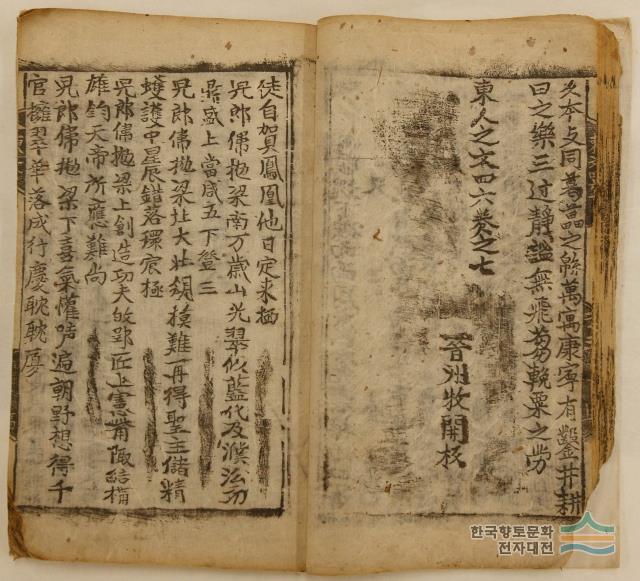 本支同葛藟之緜萬寓康寧有鑿井耕
田之樂三边靜謐無飛芻輓粟之勞
東人之文四六卷之七
晉州牧開板
徒自賀鳳凰他日定來栖
兒郎偉抛梁南万歲山光翠似藍代及濮功
鼎盛上當咸五下登三
兒郎偉抛梁北大壯規模難再得聖主儲精
蠖濩中星辰錯落環宸極
兒郎偉抛梁上創造功夫的郢匠上結構
雄鈞天帝所應難尚
兒郎偉抛梁下喜氣懽声遍朝野想得千
官擁翠華落成行慶耽耽厦
한국향토문화
전자대전